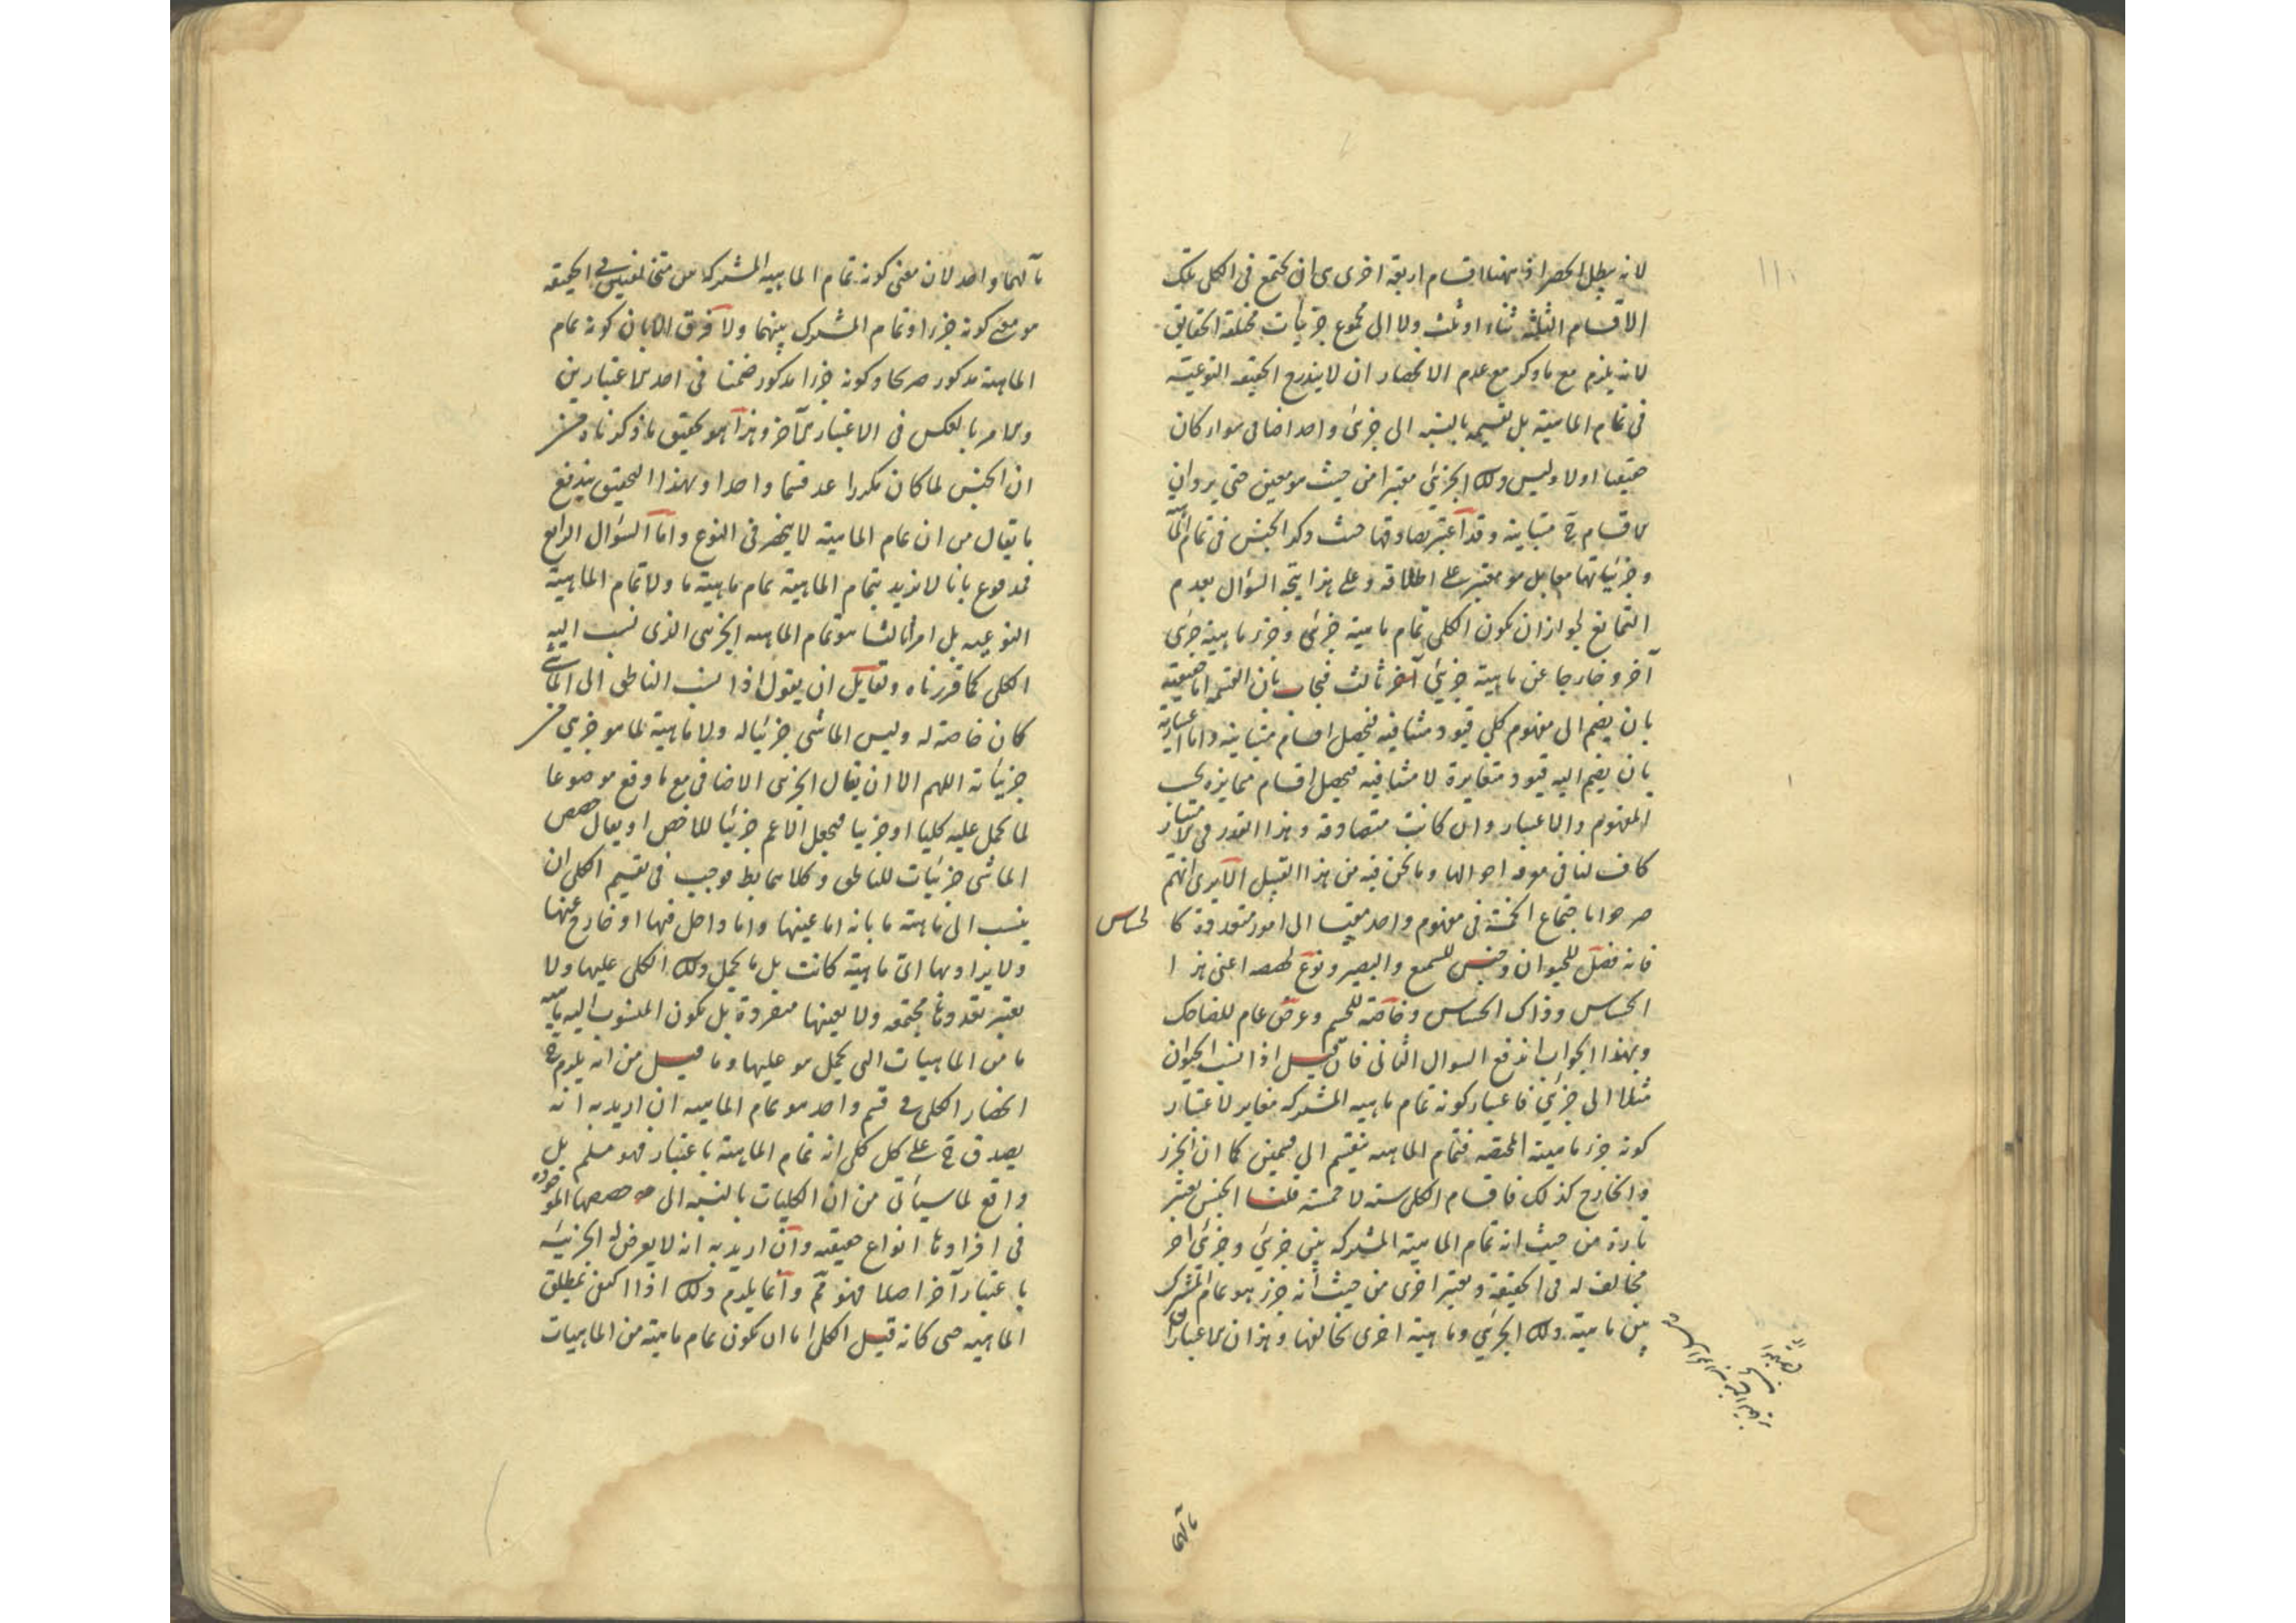 لانه يبطل الحصر اذ هنا اقسام اربعة اخرى هى ان يجتمع فى الكلى تلك
الاقسام الثلثة ثناء او ثلث ولا الى مجموع جزئيات مختلفة الحقايق
لانه يلزم مع ما ذكر مع عدم الانحصار ان لا يندرج الحقيقة النوعية
فى تمام الماهية بل تقسيمه بالنسبة الى جزئى واحد اضافى سواء كان
حقيقيا او لا وليس ذلك الجزئى معتبرا من حيث هو معين حتى يرد ان
الاقسام ح متباينة وقد اعتبر تصادقها حيث ذكر الجنس فى تمام الماهية
وجزئياتها معا بل هو معتبر على اطلاقه وعلى هذا يتجه السؤال بعدم
التمانع لجواز ان يكون الكلى تمام ماهية جزئى وجزء ماهية جزئى
آخر وخارجا عن ماهية جزئى آخر ثالث فيجاب بان القسمة اما حقيقية
بان يضم الى مفهوم كلى قيود متنافية فيحصل اقسام متباينة واما اعتبارية
بان يضم اليه قيود متغايرة لا متنافية فيحصل اقسام متمايزة بحسب
المفهوم والاعتبار وان كانت متصادقة وهذا القدر فى الامتياز
كاف لنا فى معرفة احوالها وما نحن فيه من هذا القبيل الا يرى انهم
صرحوا باجتماع الخمسة فى مفهوم واحد مقيسا الى امور متعددة كا لحساس
فانه فصل للحيوان وجنس للسميع والبصير ونوع لحصصه اعنى هذا
الحساس وذاك الحساس وخاصة للجسم وعرض عام للضاحك
وبهذا الجواب اندفع السوال الثانى فان قيل اذا نسب الحيوان
مثلا الى جزئى فاعتبار كونه تمام ماهيه المشتركه مغاير لاعتبار
كونه جزء ماهيته المختصه فتمام الماهيه ينقسم الى قسمين كما ان الجزء
والخارج كذلك فاقسام الكلى سته لا خمسة قلنا الجنس يعتبر
تارة من حيث انه تمام الماهية المشتركه بين جزئى وجزئى آخر
مخالف له فى الحقيقة ويعتبر اخرى من حيث انه جزء هو تمام المشترك
بين ماهية ذلك الجزئى وماهية اخرى تخالفها وهذان الاعتباران
مآلهما
مآلهما واحد لان معنى كونه تمام الماهيه المشتركه بين متخالفين فى الحقيقه
هو معنى كونه جزءا وتمام المشترك بينهما ولا فرق الا بان كونه تمام
الماهية مذكور صريحا وكونه جزءا مذكور ضمنا فى احد الاعتبارين
والامر بالعكس فى الاعتبار الآخر وهذا هو تحقيق ما ذكرناه من
ان الجنس لما كان مكررا عد قسما واحدا وبهذا التحقيق يندفع
ما يقال من ان تمام الماهية لا ينحصر فى النوع واما السؤال الرابع
فمدفوع بانا لا نريد بتمام الماهية تمام ماهية ما ولا تمام الماهية
النوعيه بل امرا ثالثا هو تمام الماهيه الجزئى الذى نسب اليه
الكلى كما قررناه ولقايل ان يقول اذا نسب الناطق الى الماشى
كان خاصة له وليس الماشى جزئيا له ولا ماهية لما هو جزئى من
جزئياته اللهم الا ان يقال الجزئى الاضافى مع ما وقع موضوعا
لما يحمل عليه كليا او جزئيا فيجعل الاعم جزئيا للاخص او يقال حصص
الماشى جزئيات للناطق وكلاهما بط فوجب فى تقسيم الكلى ان
ينسب الى ماهية ما بانه اما عينها واما داخل فيها او خارج عنها
ولا يراد بها اى ماهية كانت بل ما يحمل ذلك الكلى عليها ولا
يعتبر تعددها مجتمعه ولا بعينها منفردة بل يكون المنسوب اليه ماهية
ما من الماهيات التى يحمل هو عليها وما قيل من انه يلزم ح
انحصار الكلى فى قسم واحد هو تمام الماهيه ان اريد به انه
يصدق ح على كل كلى انه تمام الماهية باعتبار فهو مسلم بل
واقع لما سيأتى من ان الكليات بالنسبه الى حصصها الموجوده
فى افرادها انواع حقيقيه وان اريد به انه لا يعرض له الجزئية
باعتبار آخر اصلا فهو مم وانما يلزم ذلك اذا اكتفى بمطلق
الماهيه حتى كانه قيل الكلى اما ان يكون تمام ماهية من الماهيات